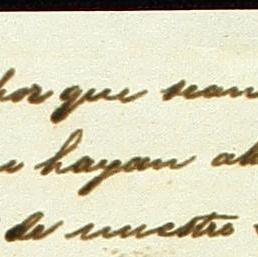 por que sean
hayan
de nuestro